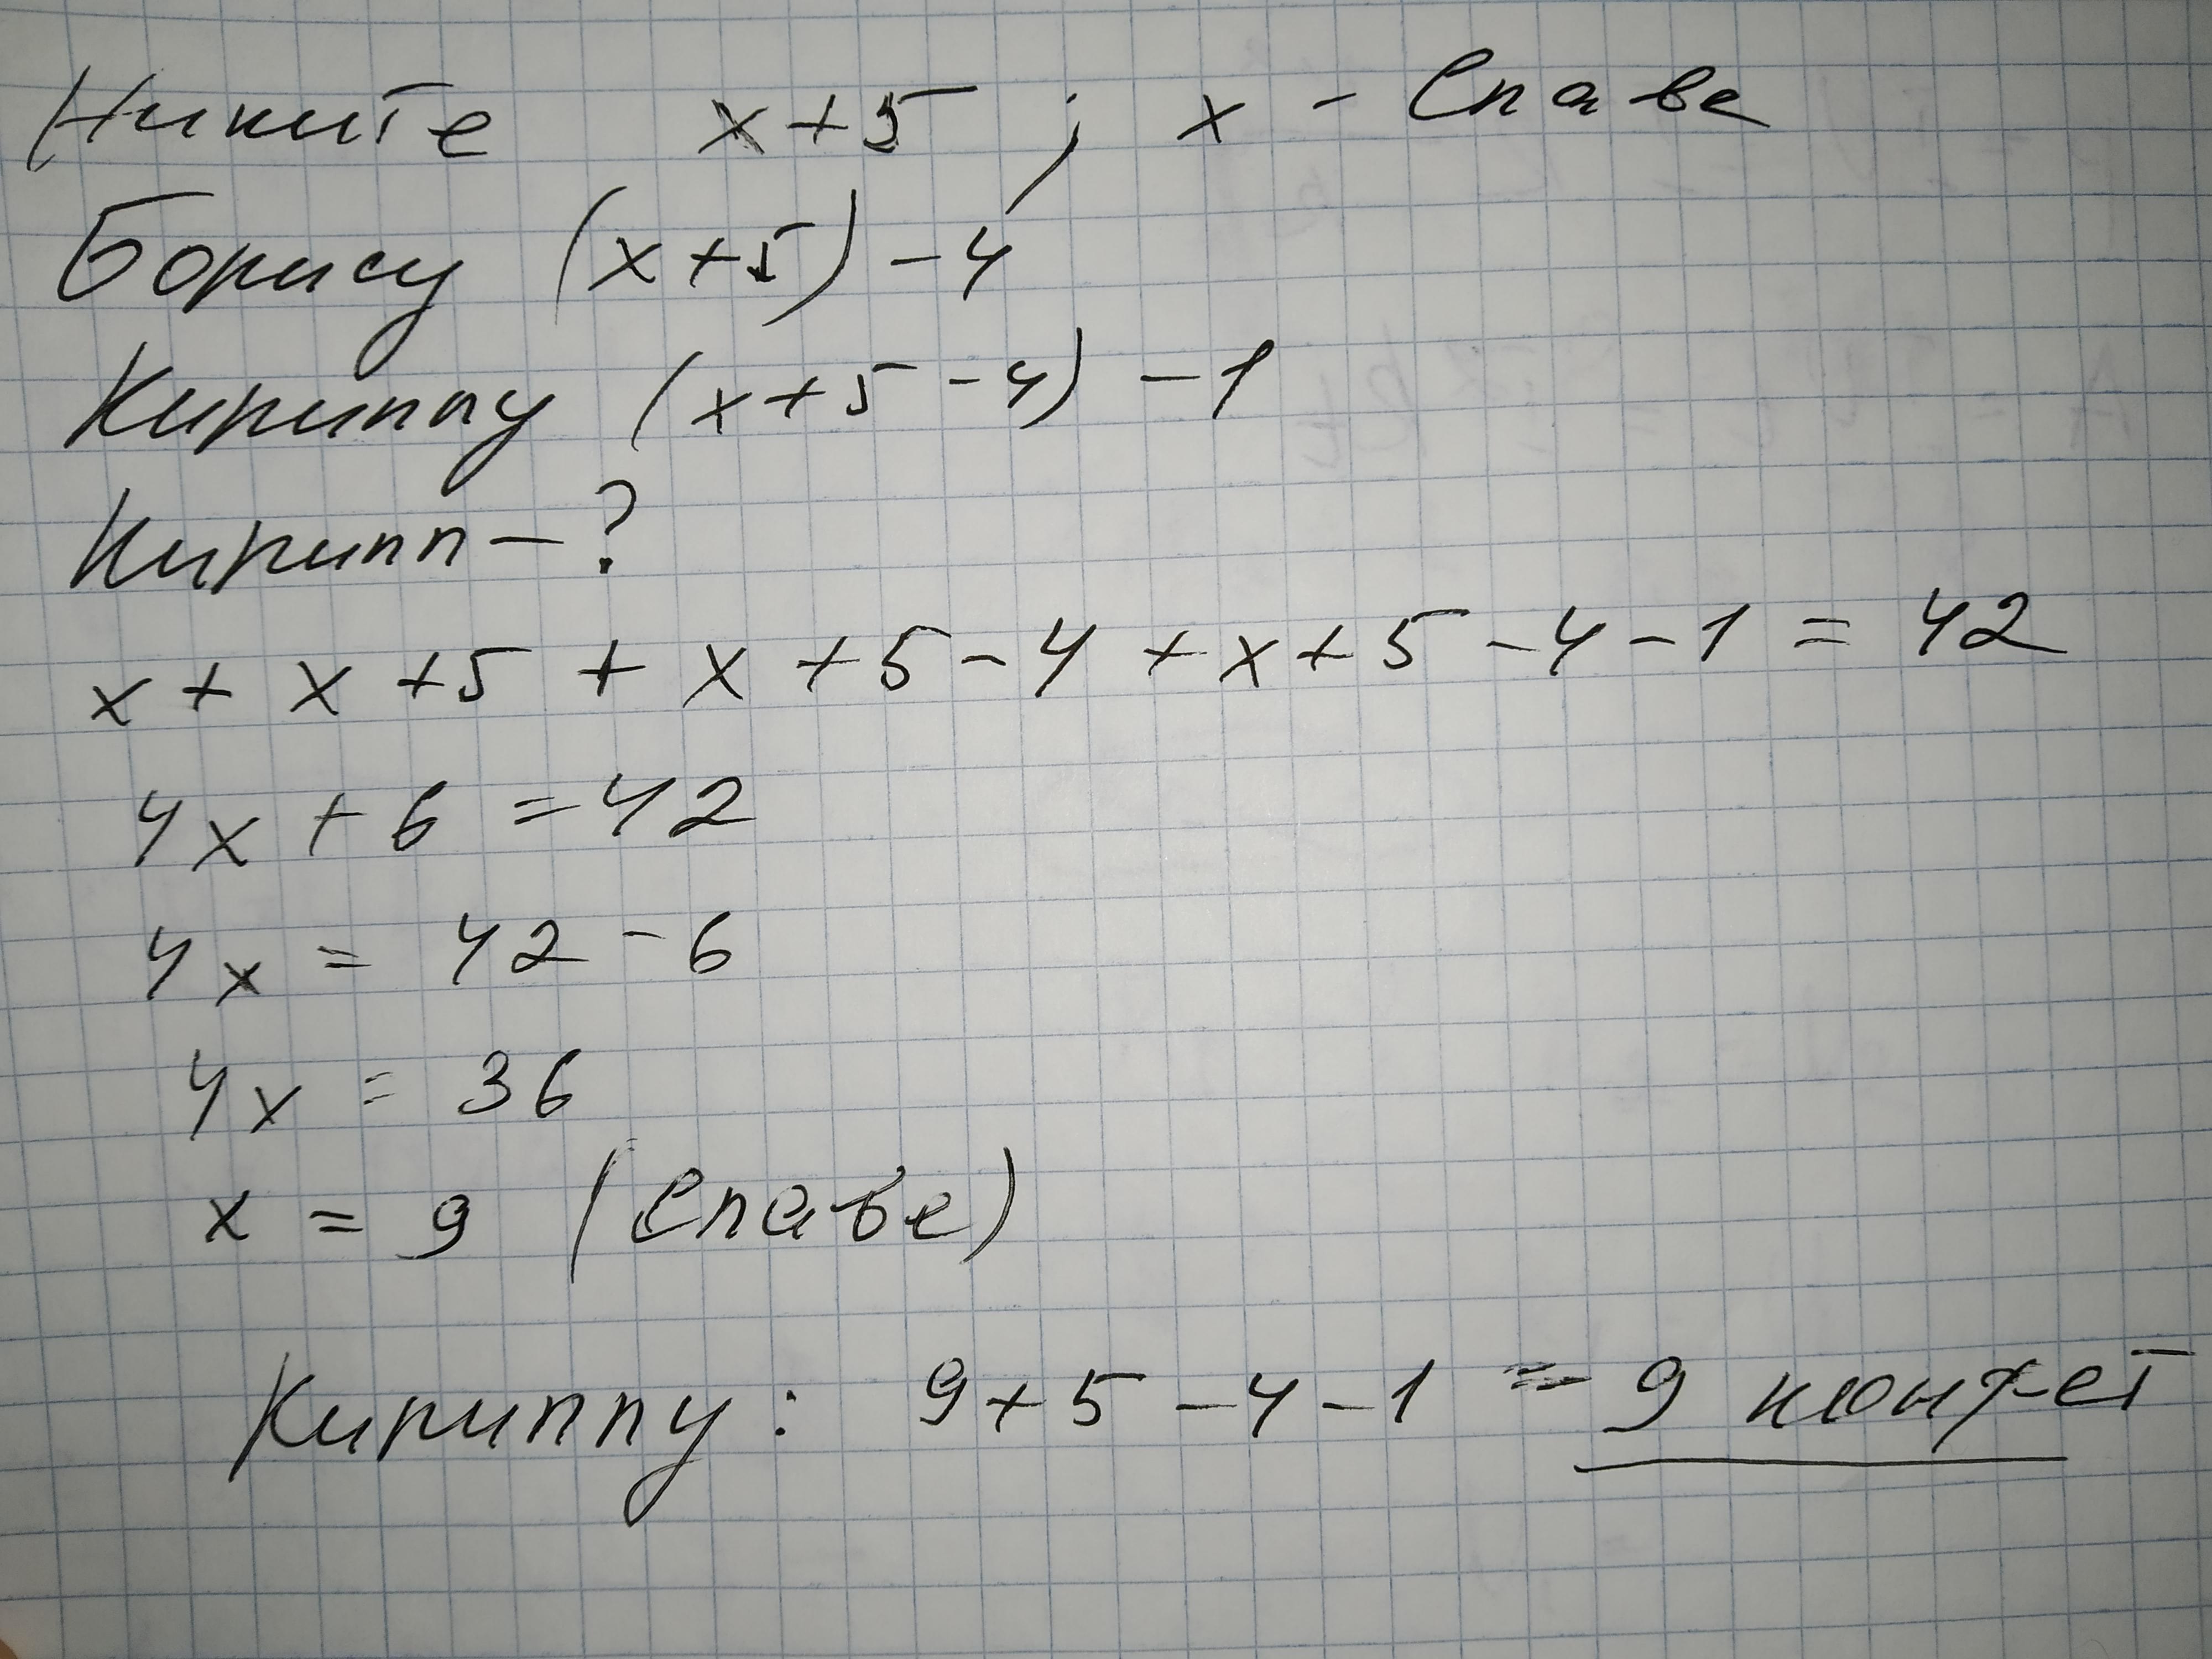 Никите x+5 ; x - Славе
Борису (x+5)-4
Кириллу (x+5-4)-1
Кирилл - ?
x + x +5 + x +5-4 +x+5-4-1 = 42
4x + 6 = 42
4x = 42 - 6
4x = 36
x = 9 (Славе)
Кириллу: 9+5-4-1 = 9 конфет